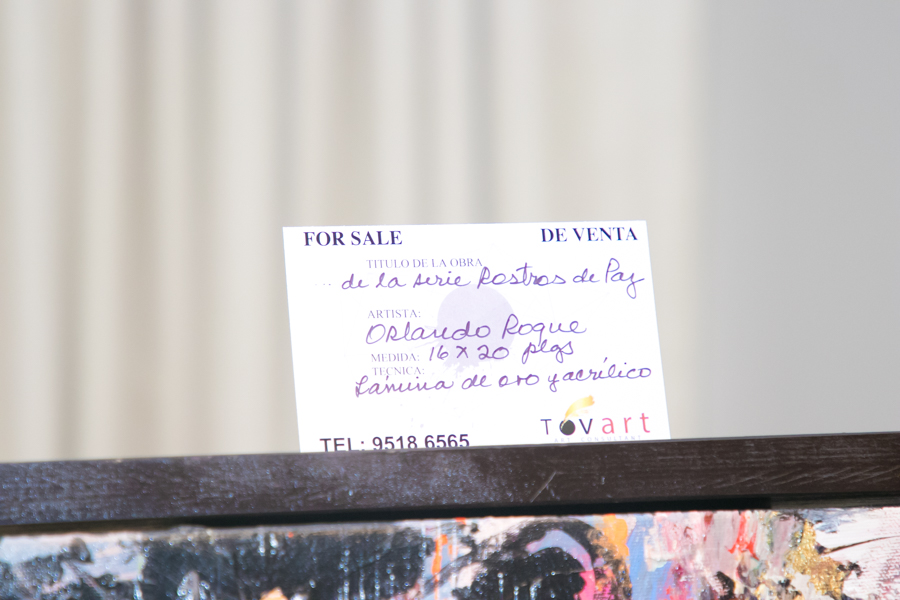 FOR SALE DE VENTA
TITULO DE LA OBRA
... de la serie Rostros de Paz
ARTISTA:
Orlando Roque
MEDIDA: 16 x 20 plgs
TECNICA:
Lámina de oro y acrílico
TEL: 9518 6565
Tovart